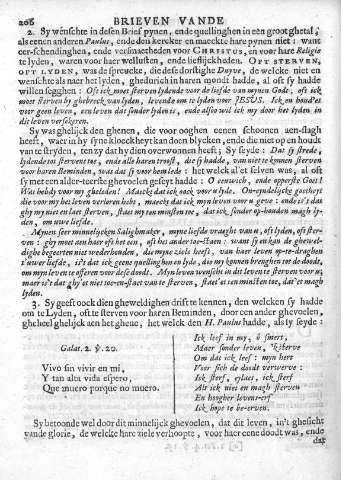 206 BRIEVEN VANDE
2. Sy wenschte in desen Brief pynen, ende quellinghen in een groot ghetal,
als eenen anderen Paulus, ende den kercker en maeckte hare pynen niet: want
eer-schendinghen, ende versmaetheden voor CHRISTUS, en voor hare Religie
te lyden, waren voor haer wellusten, ende lieflijckheden. OFT STERVEN,
OFT LYDEN, was de spreucke, die dese dorstighe Duyve, de welcke niet en
wenschte als naer het lyden, gheduerich in haren mondt hadde, al oft sy hadde
willen segghen: Oft ick moet sterven lydende voor de liefde van mynen Godt, oft ick
moet sterven by ghebreck van lyden, levende om te lyden voor JESUS. Ick en houd'et
voor geen leven, een leven dat sonder lyden is, ende alsoo wil ick my door het lyden in
dit leven versekeren.
Sy was ghelijck den ghenen, die voor ooghen eenen schoonen aen-slagh
heeft, waer in hy syne kloeckheyt kan doen blycken, ende die niet op en houdt
van te stryden, tenzy dat hy dien oock verwonnen heeft; Sy seyde: Dat sy strede,
lydende tot stervens toe, ende alle haren troost, die sy hadde, van niet te konnen sterven
voor haren Beminden, was dat sy voor hem lede: het welck al 't selven was, al oft
sy met een alder-teerste ghevoelen geseyt hadde: O eeuwich, ende opperste Goet!
Was beduydt voor my met glorie, dat ick oock voor u lyde. On-eyndelijcke goetheyt
die voor my het leven gaeft, maeckt dat ick myn leven voor u geve: ende is't dat
ghy my niet en laet sterven, staet my ten minsten toe, dat ick sonder op-houden magh lyden,
om uwe liefde.
Mynen seer minnelijcken Salighmaker, myne liefde vraeght van u, oft lyden, oft sterven:
ghy moet aen haer oft het een, oft het ander toe-staen: want sy en kan de gheweldighe
begeerten niet wederhouden, die myne ziele heeft, van haer leven op-te-draghen
aen uwe liefde, is't dat ick geene quellinghen en lyde, die my konnen brenghen tot de doodt,
om myn leven te offeren voor dese doodt. Myn leven wenscht in dit leven te sterven voor u,
maer is't dat ghy 't niet toe-en-staet van te sterven, staet 'et ten minsten toe, dat et magh
lyden.
3. Sy geeft oock dien gheweldighen drift te kennen, den welcken sy hadde
om te Lyden, oft te sterven voor haren Beminden, door een ander ghevoelen,
gheheel ghelijck aen het ghene, het welck den H. Paulus hadde, als sy seyde:
Galat. 2. ℣. 20.
Vivo sin vivir en mi,
Y tan alta vida espero,
Que muero porque no muero.
Ick leef in my, ô smert,
Maer sonder leven, 'k sterve
Om dat ick leef: myn hert
Voor sich de doodt verwerve:
Ick sterf, eylaes, ick sterf
Als ick niet en magh sterven
En hoogher levens-erf
Ick hope te be-erven.
Sy betoonde wel door dit minnelijck ghevoelen, dat dit leven, in't ghesicht
vande glorie, de welcke hare ziele verhoopte, voor haer eene doodt was, ende
dat